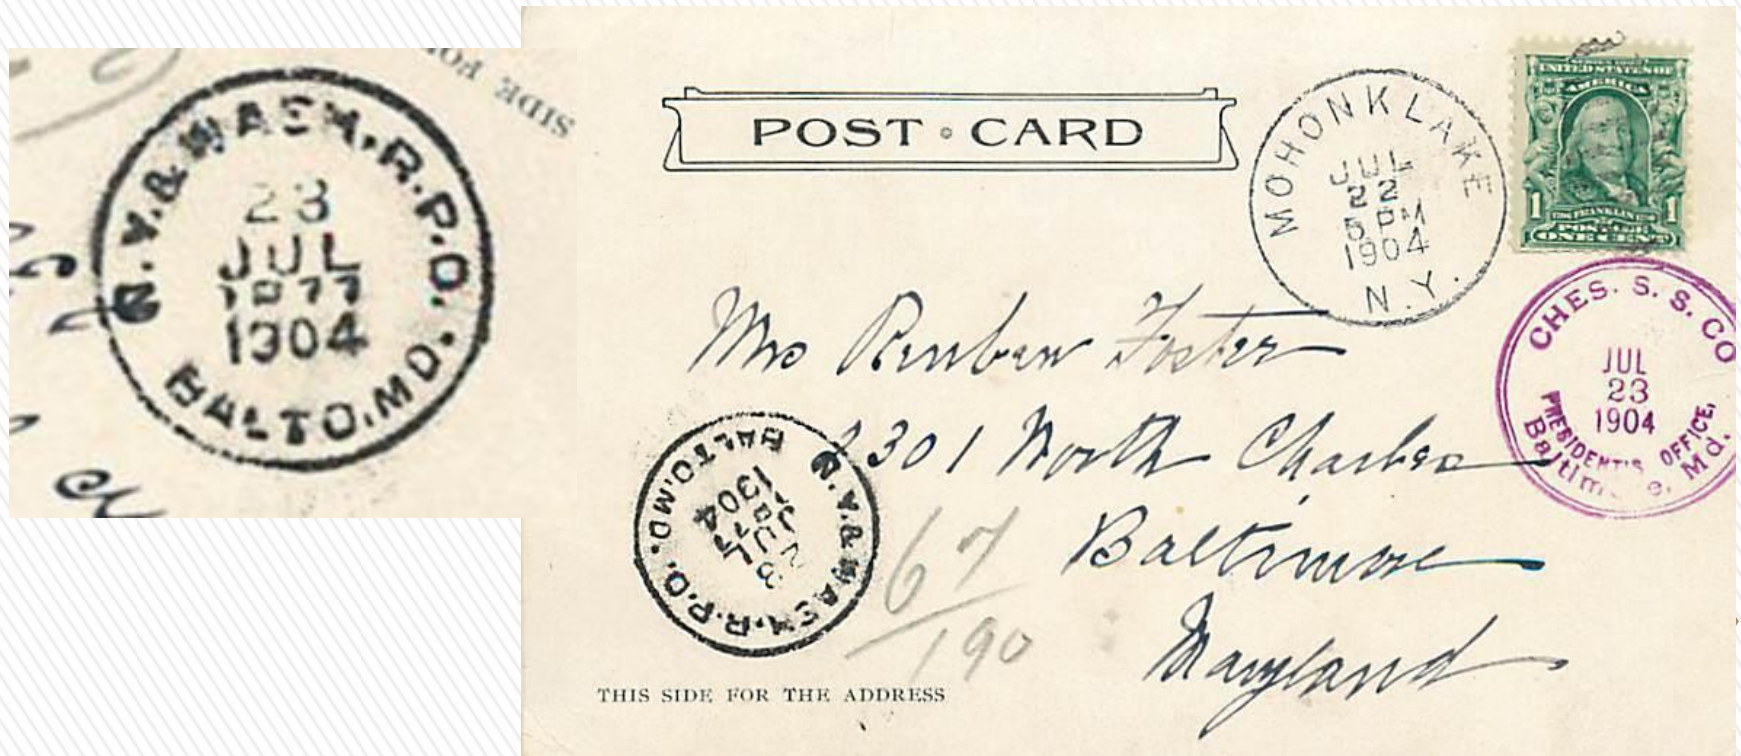 SIDE FO
N.Y. & WASH. R.P.O.
23
JUL
1877
1904
BALTO. MD.
POST CARD
MOHONK LAKE
JUL
22
5 PM
1904
N.Y.
SERIES 1902
UNITED STATES OF
AMERICA
1 FRANKLIN 1
POSTAGE
ONE CENT
CHES. S. S. CO
JUL
23
1904
PRESIDENT'S OFFICE,
Baltim e, Md.
Mrs Reuben Foster
2301 North Charles
Baltimore
Maryland
N.Y. & WASH. R.P.O.
23
JUL
1877
1904
BALTO. MD.
67
190
THIS SIDE FOR THE ADDRESS